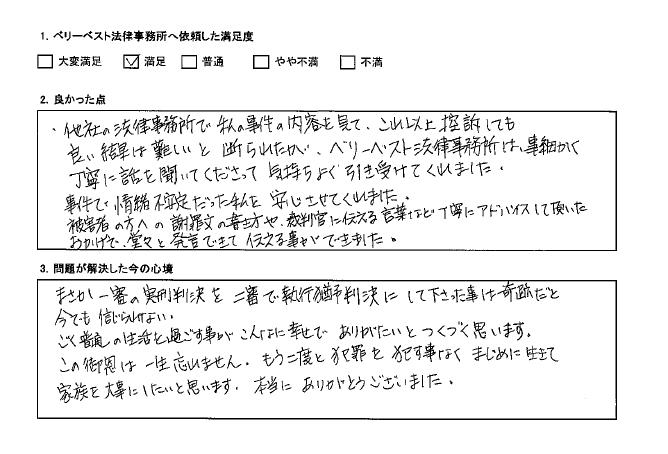 1. ベリーベスト法律事務所へ依頼した満足度
□ 大変満足 ☑ 満足 □ 普通 □ やや不満 □ 不満
2. 良かった点
・他社の法律事務所で私の事件の内容を見て、これ以上控訴しても
良い結果は難しいと断られたが、ベリーベスト法律事務所は、事細かく
丁寧に話を聞いてくださって気持ちよく引き受けてくれました。
事件で情緒不安定だった私を安心させてくれました。
被害者の方への謝罪文の書き方や、裁判官に伝える言葉など丁寧にアドバイスして頂いた
おかげで、堂々と発言できて伝える事ができました。
3. 問題が解決した今の心境
まさか一審の実刑判決を二審で執行猶予判決にして下さった事は奇跡だと
今でも信じられない。
ごく普通の生活を過ごす事がこんなに幸せでありがたいとつくづく思います。
この御恩は一生忘れません。もう二度と犯罪を犯す事なくまじめに生きて
家族を大事にしたいと思います。本当にありがとうございました。